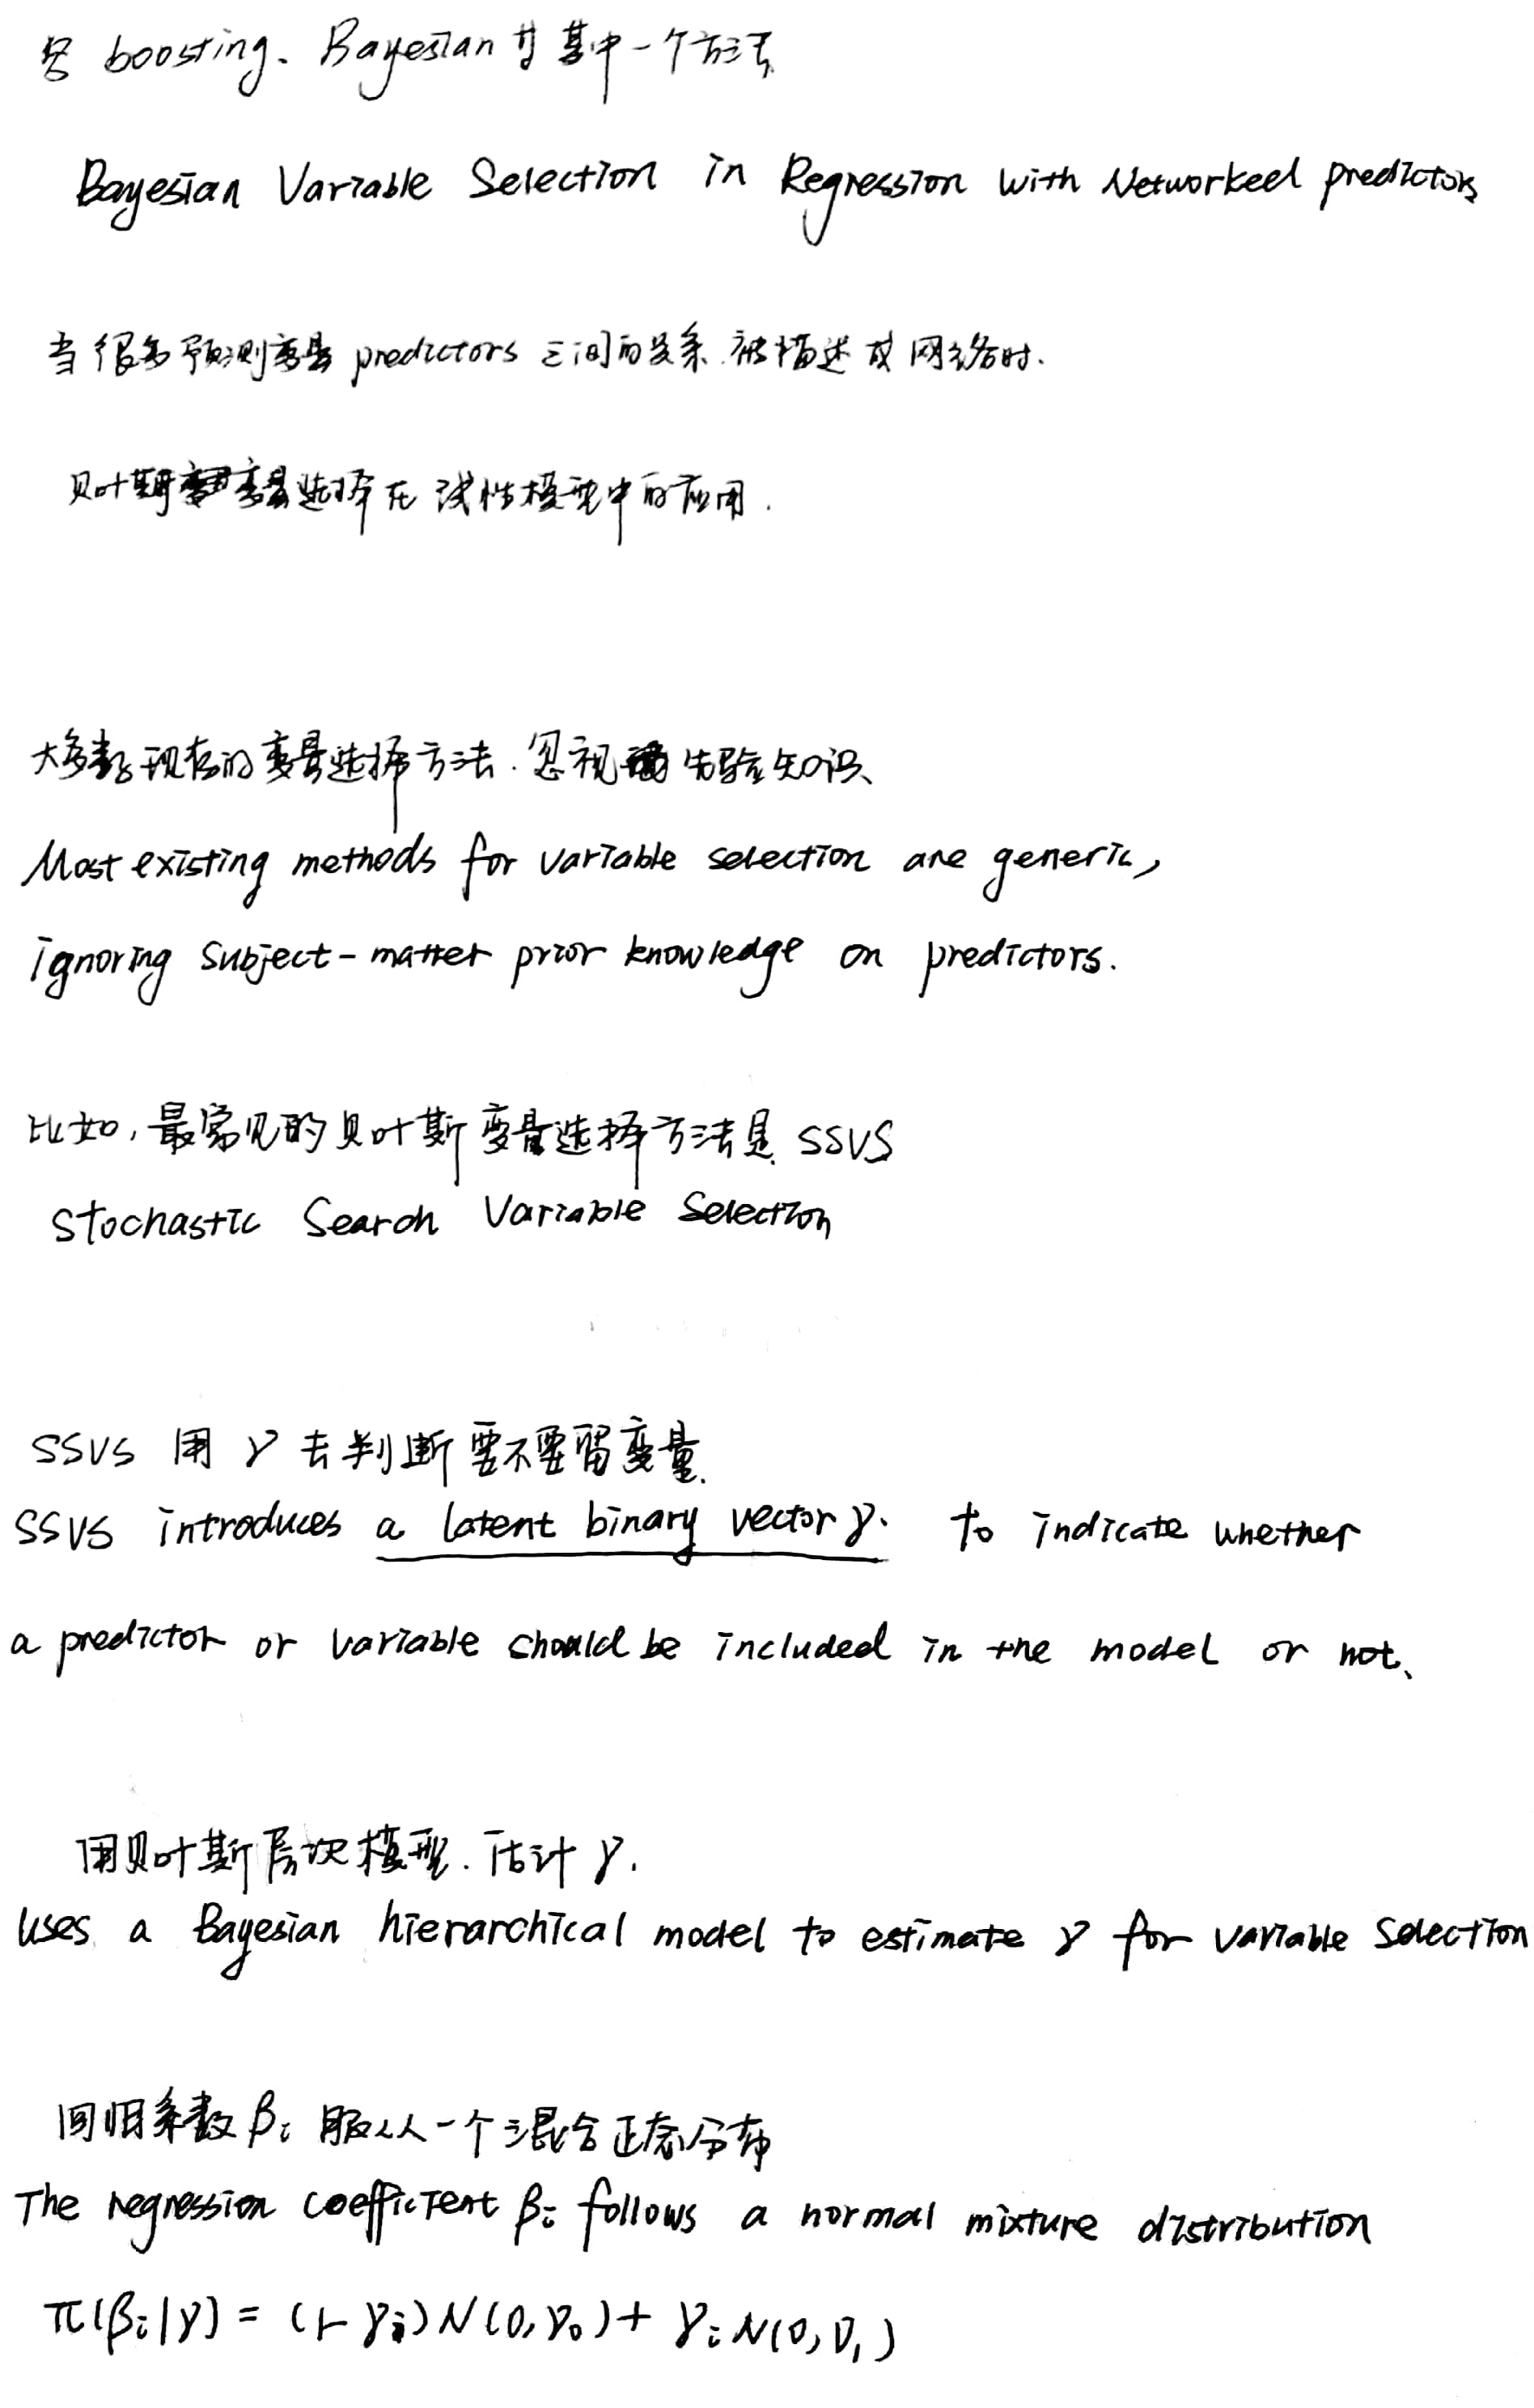 boosting、Bayesian 为其中一个方法
Bayesian Variable Selection in Regression with Networked predictors
当很多预测变量 predictors 之间的关系被描述成网络时.
贝叶斯变量选择在线性模型中的应用.
大多数现存的变量选择方法.忽视先验知识、
Most existing methods for variable selection are generic,
ignoring subject-matter prior knowledge on predictors.
比如,最常见的贝叶斯变量选择方法是 SSVS
Stochastic Search Variable Selection
SSVS 用 γ 去判断要不要留变量.
SSVS introduces a latent binary vector γ. to indicate whether
a predictor or variable should be included in the model or not、
用贝叶斯层次模型.估计 γ.
uses a Bayesian hierarchical model to estimate γ for variable selection
回归系数 βi 服从一个混合正态分布
The regression coefficient βi follows a normal mixture distribution
π(βi|γ) = (1-γi)N(0,ν0)+ γiN(0,ν1)